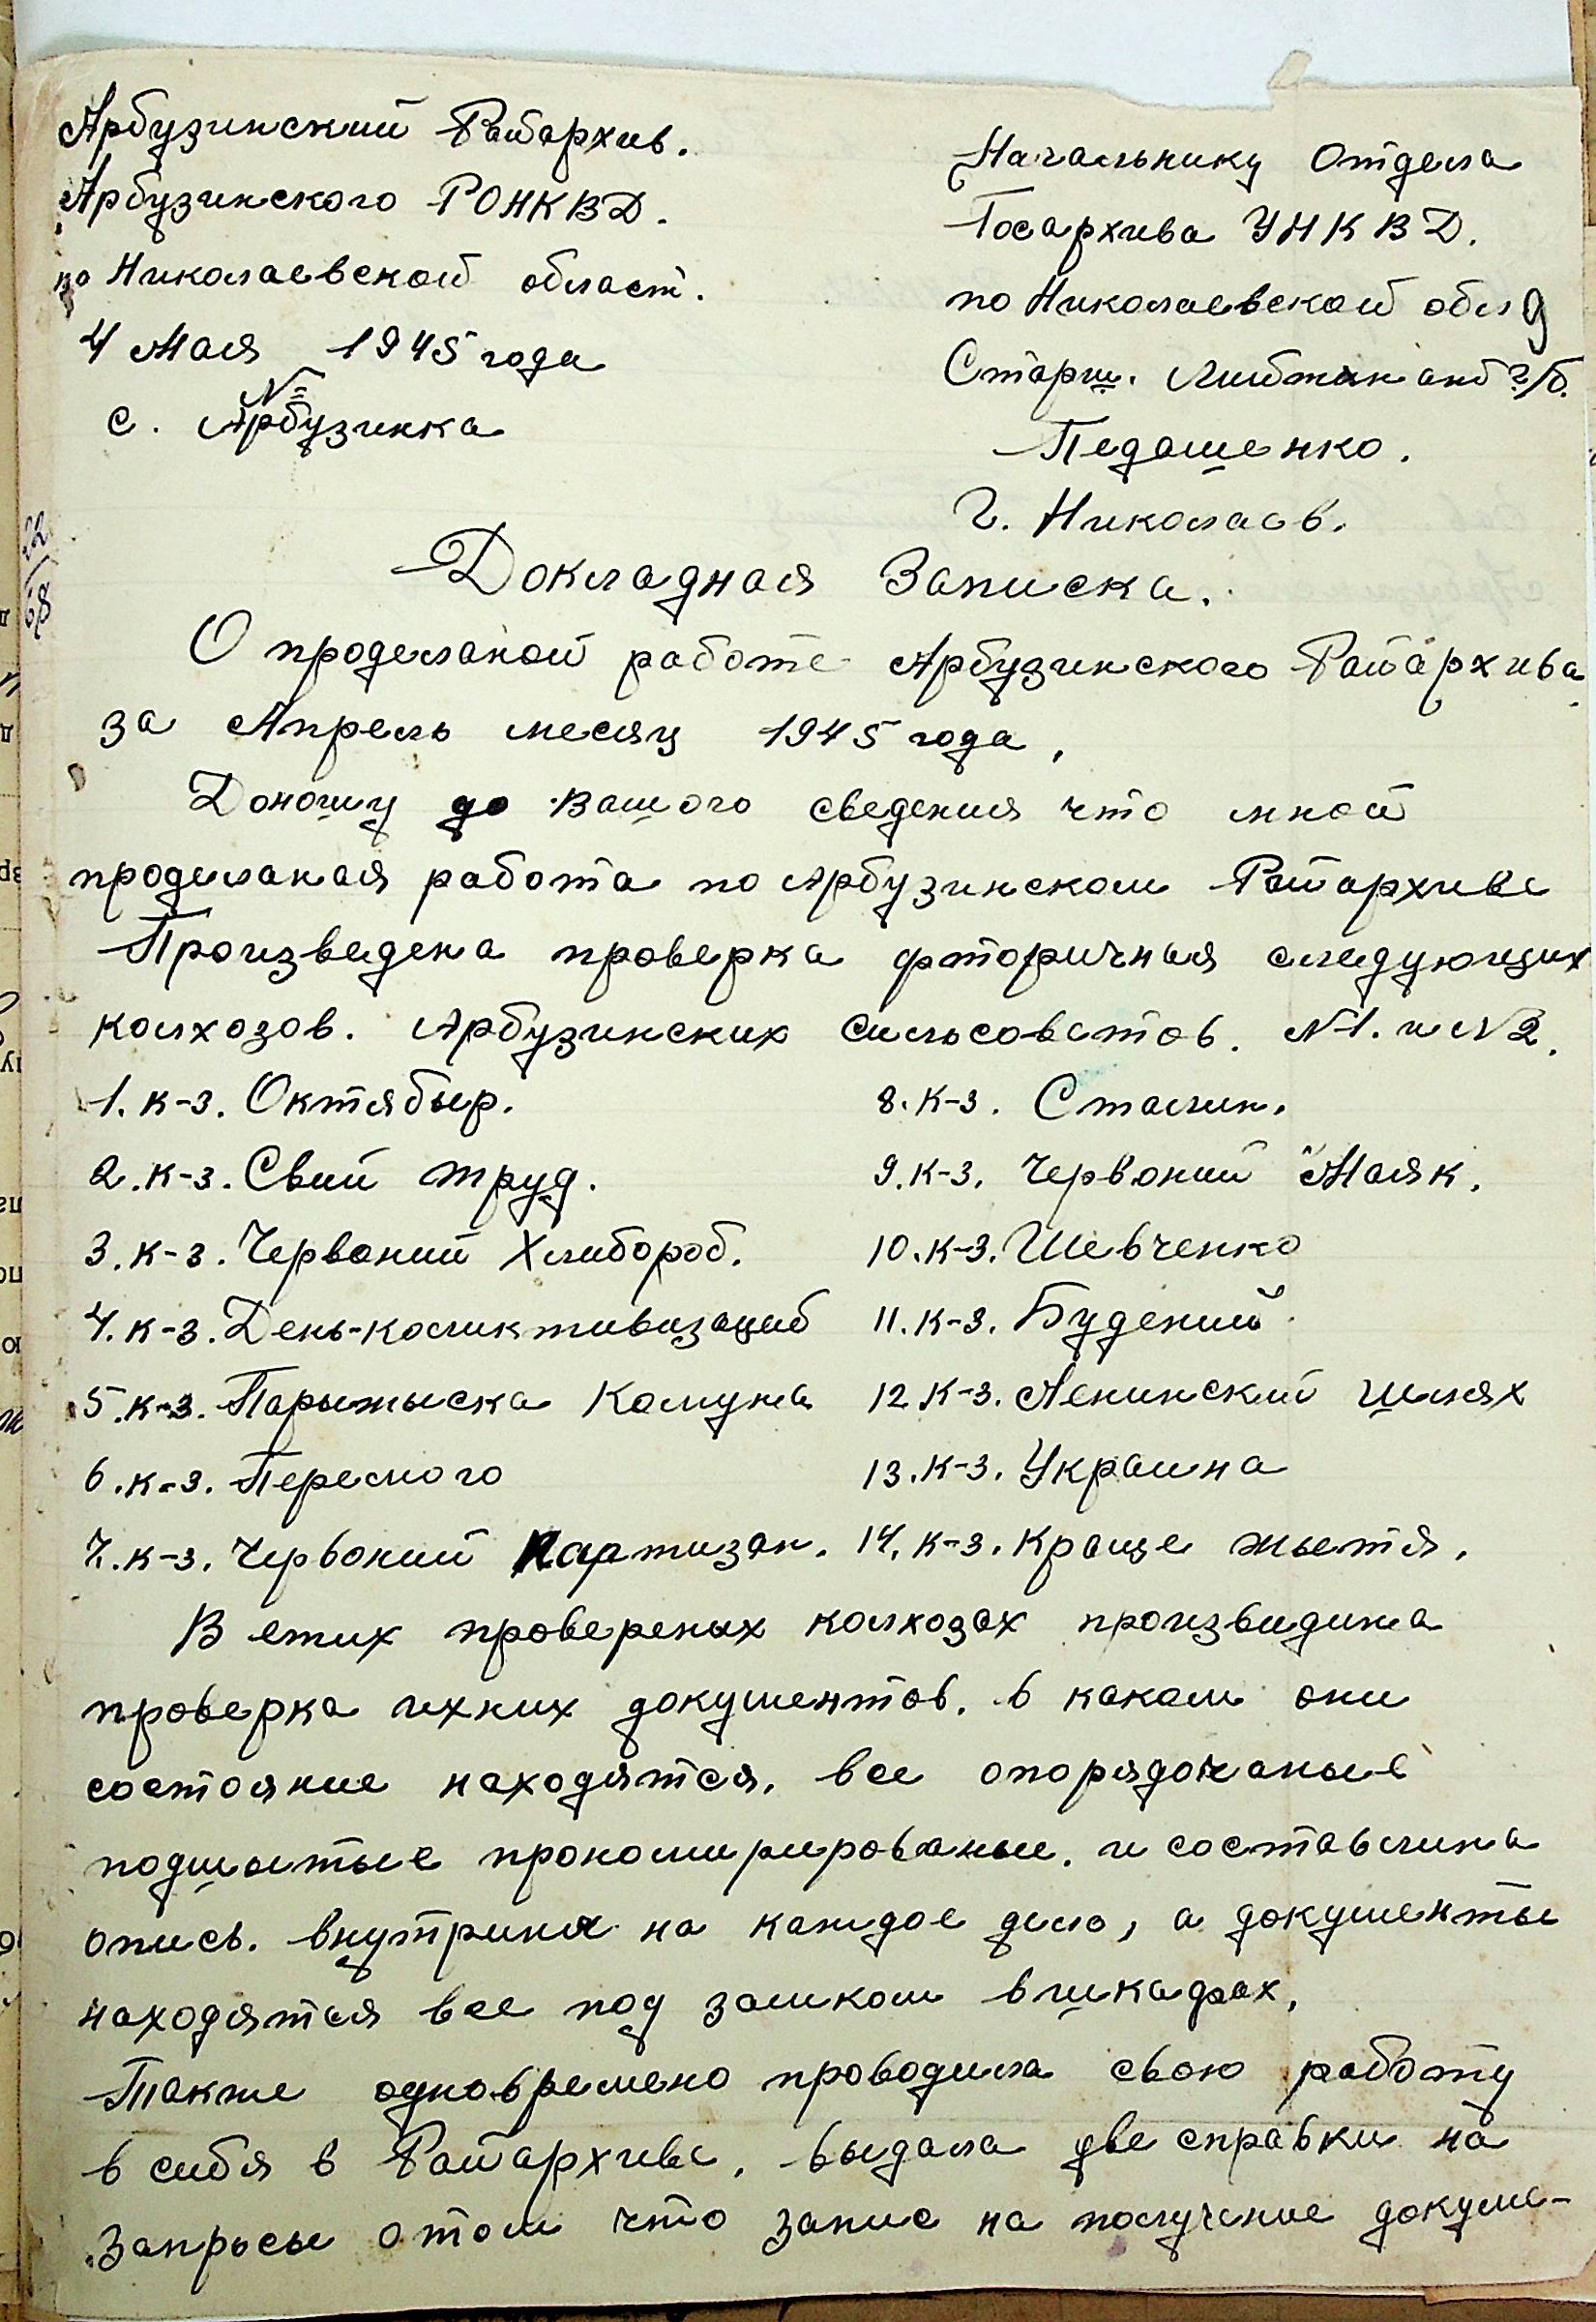 Арбузинский Райархив.
Арбузинского РОНКВД.
по Николаевской област.
4 Мая 1945 года
№
с. Арбузинка
Начальнику отдела
Госархива УНКВД.
по Николаевской обл
Старш. г/б.
Педашенко.
г. Николаев.
22
68
Докладная Записка.
О проделаной работе Арбузинского Райархива
за Апрель месяц 1945 года,
Доношу до вашого сведения что мной
проделаная работа по Арбузинском Райархиве
Произведена проверка фторичная следующих
колхозов. Арбузинских сильсоветов. №1. и №2.
1. к-з. Октябыр.
2. к-з. Свий труд.
3. к-з. Червоний Хлибороб.
4. к-з. День-коликтивизацие
5. к-з. Парыжыска Комуна
6. к-з. Перемого
7. к-з. Червоний Партизан.
8. к-з. Сталин.
9. к-з. Червоний "Маяк.
10. к-з. Шевченко
11. к-з. Будений
12 к-з. Ленинский шлях
13. к-з. Украина
14. к-з. Краще жытя.
В етих провереных колхозах произвидина
проверка ихних документов. в каком они
состояние находятся, все опорядочаные
подшытые прономирированые. и составлина
опись. внутриня на каждое дило, а документы
находятся все под замком в шкафах,
Также одновремено проводила свою работу
в сибя в Райархиве, выдала две справки на
запросы о том что запис на получение докуме-